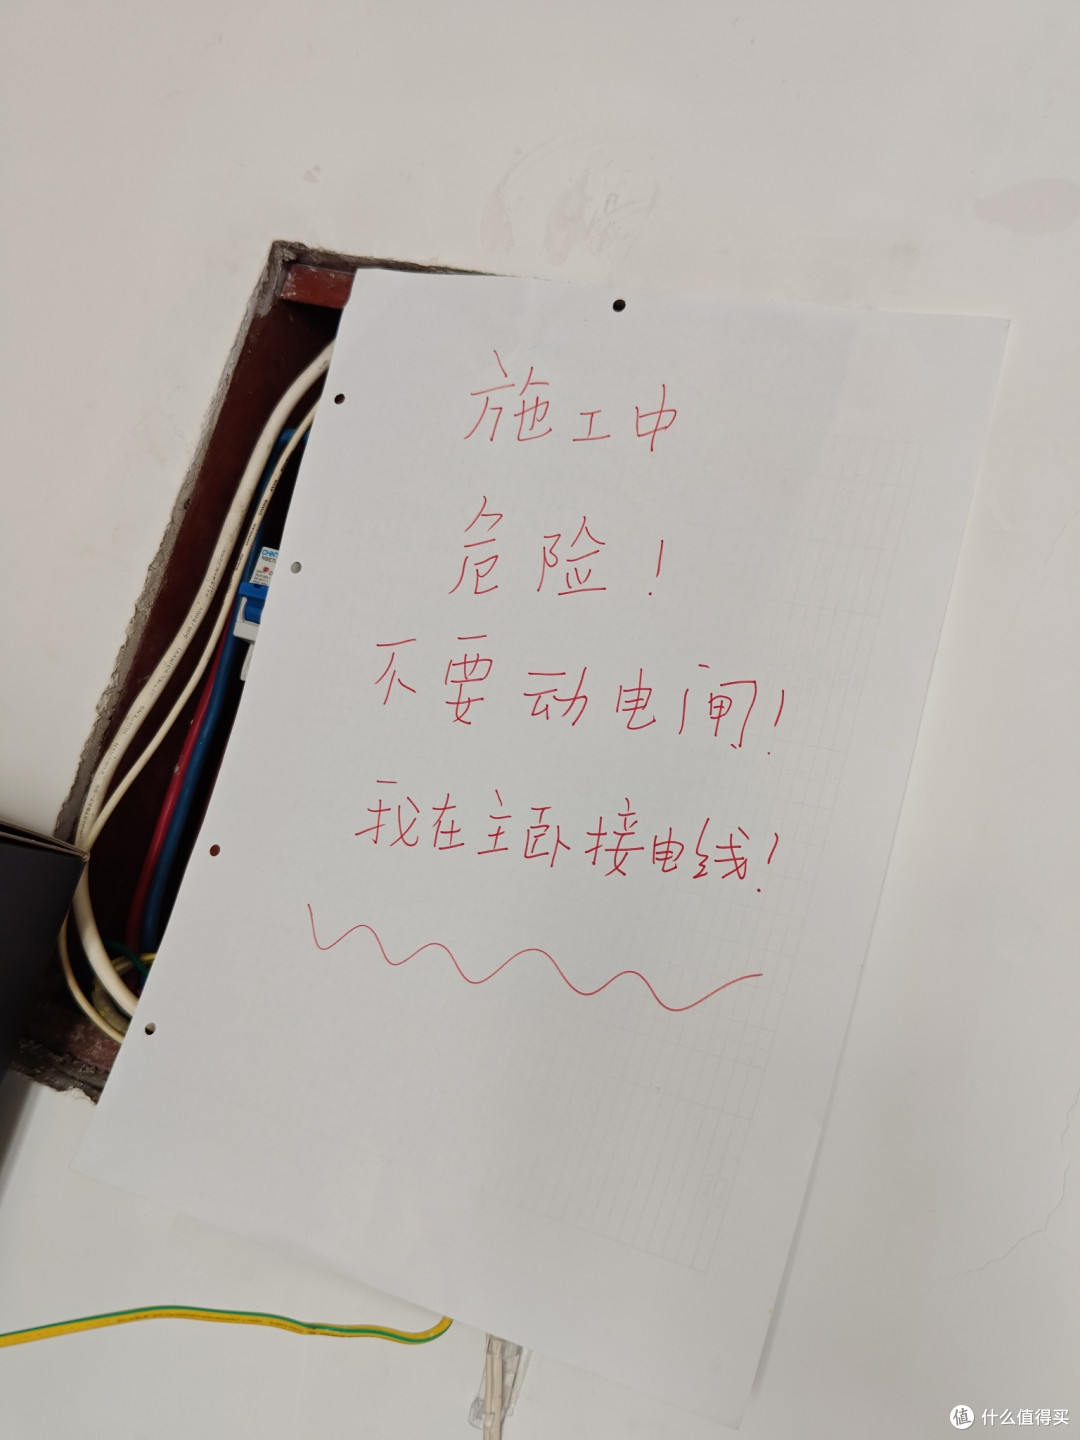 施工中
危险！
不要动电闸！
我在主卧接电线！
值 什么值得买